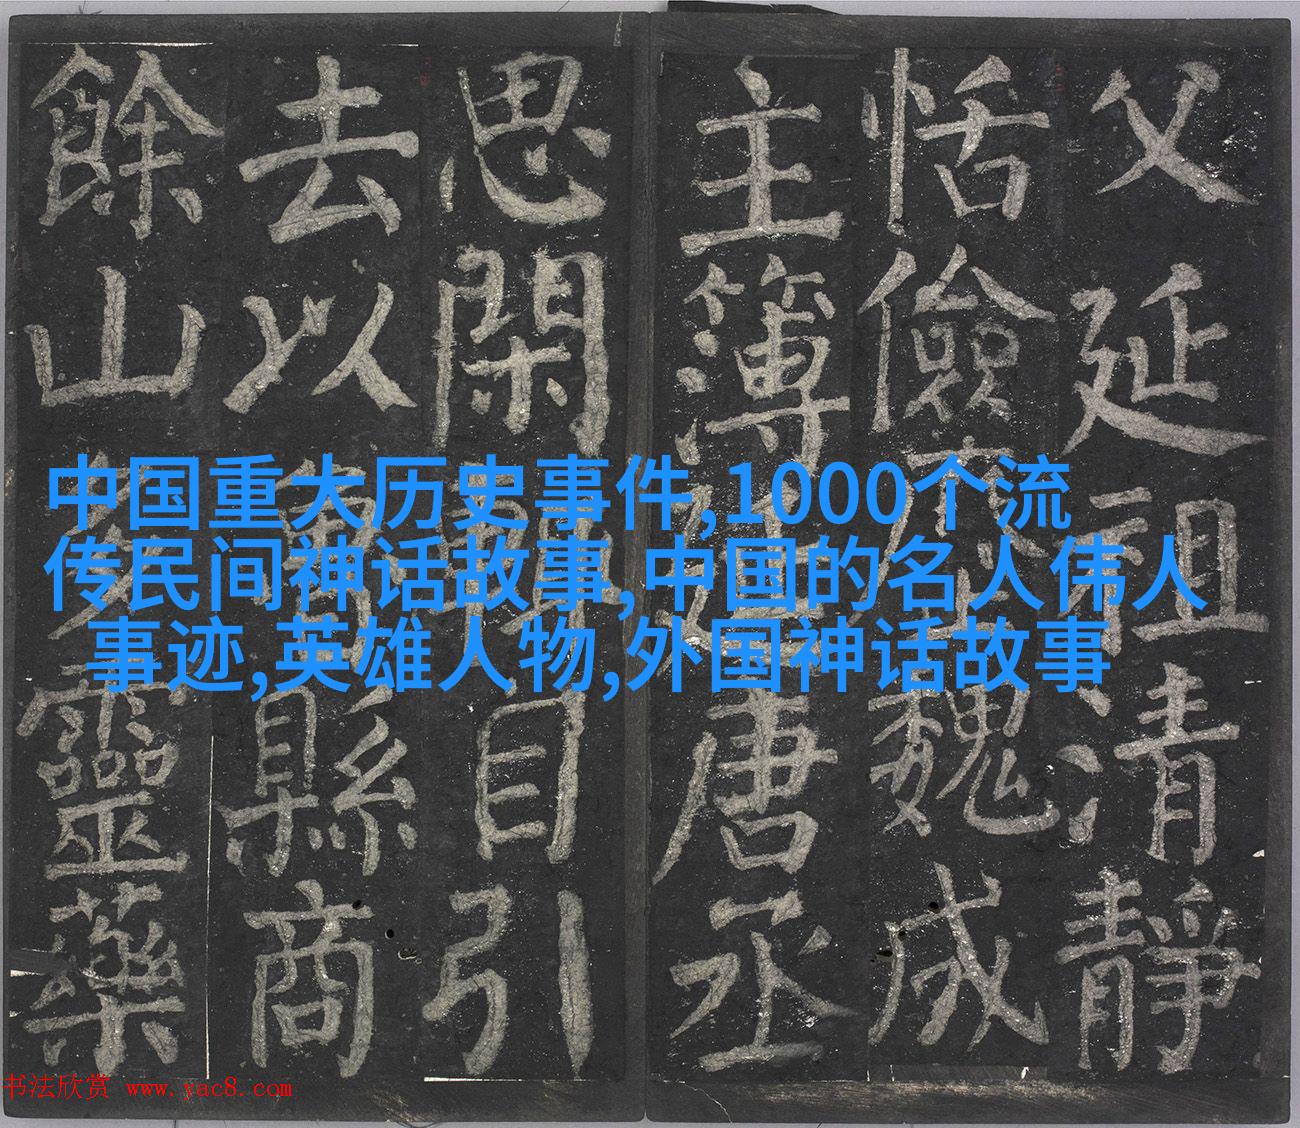 父延祖清靜
恬儉魏成
主簿唐丞
思閑目引
去以縣商
餘山多靈藥
中国重大历史事件,1000个流
传民间神话故事,中国的名人伟人
事迹,英雄人物,外国神话故事
书法欣赏 www.yac8.com